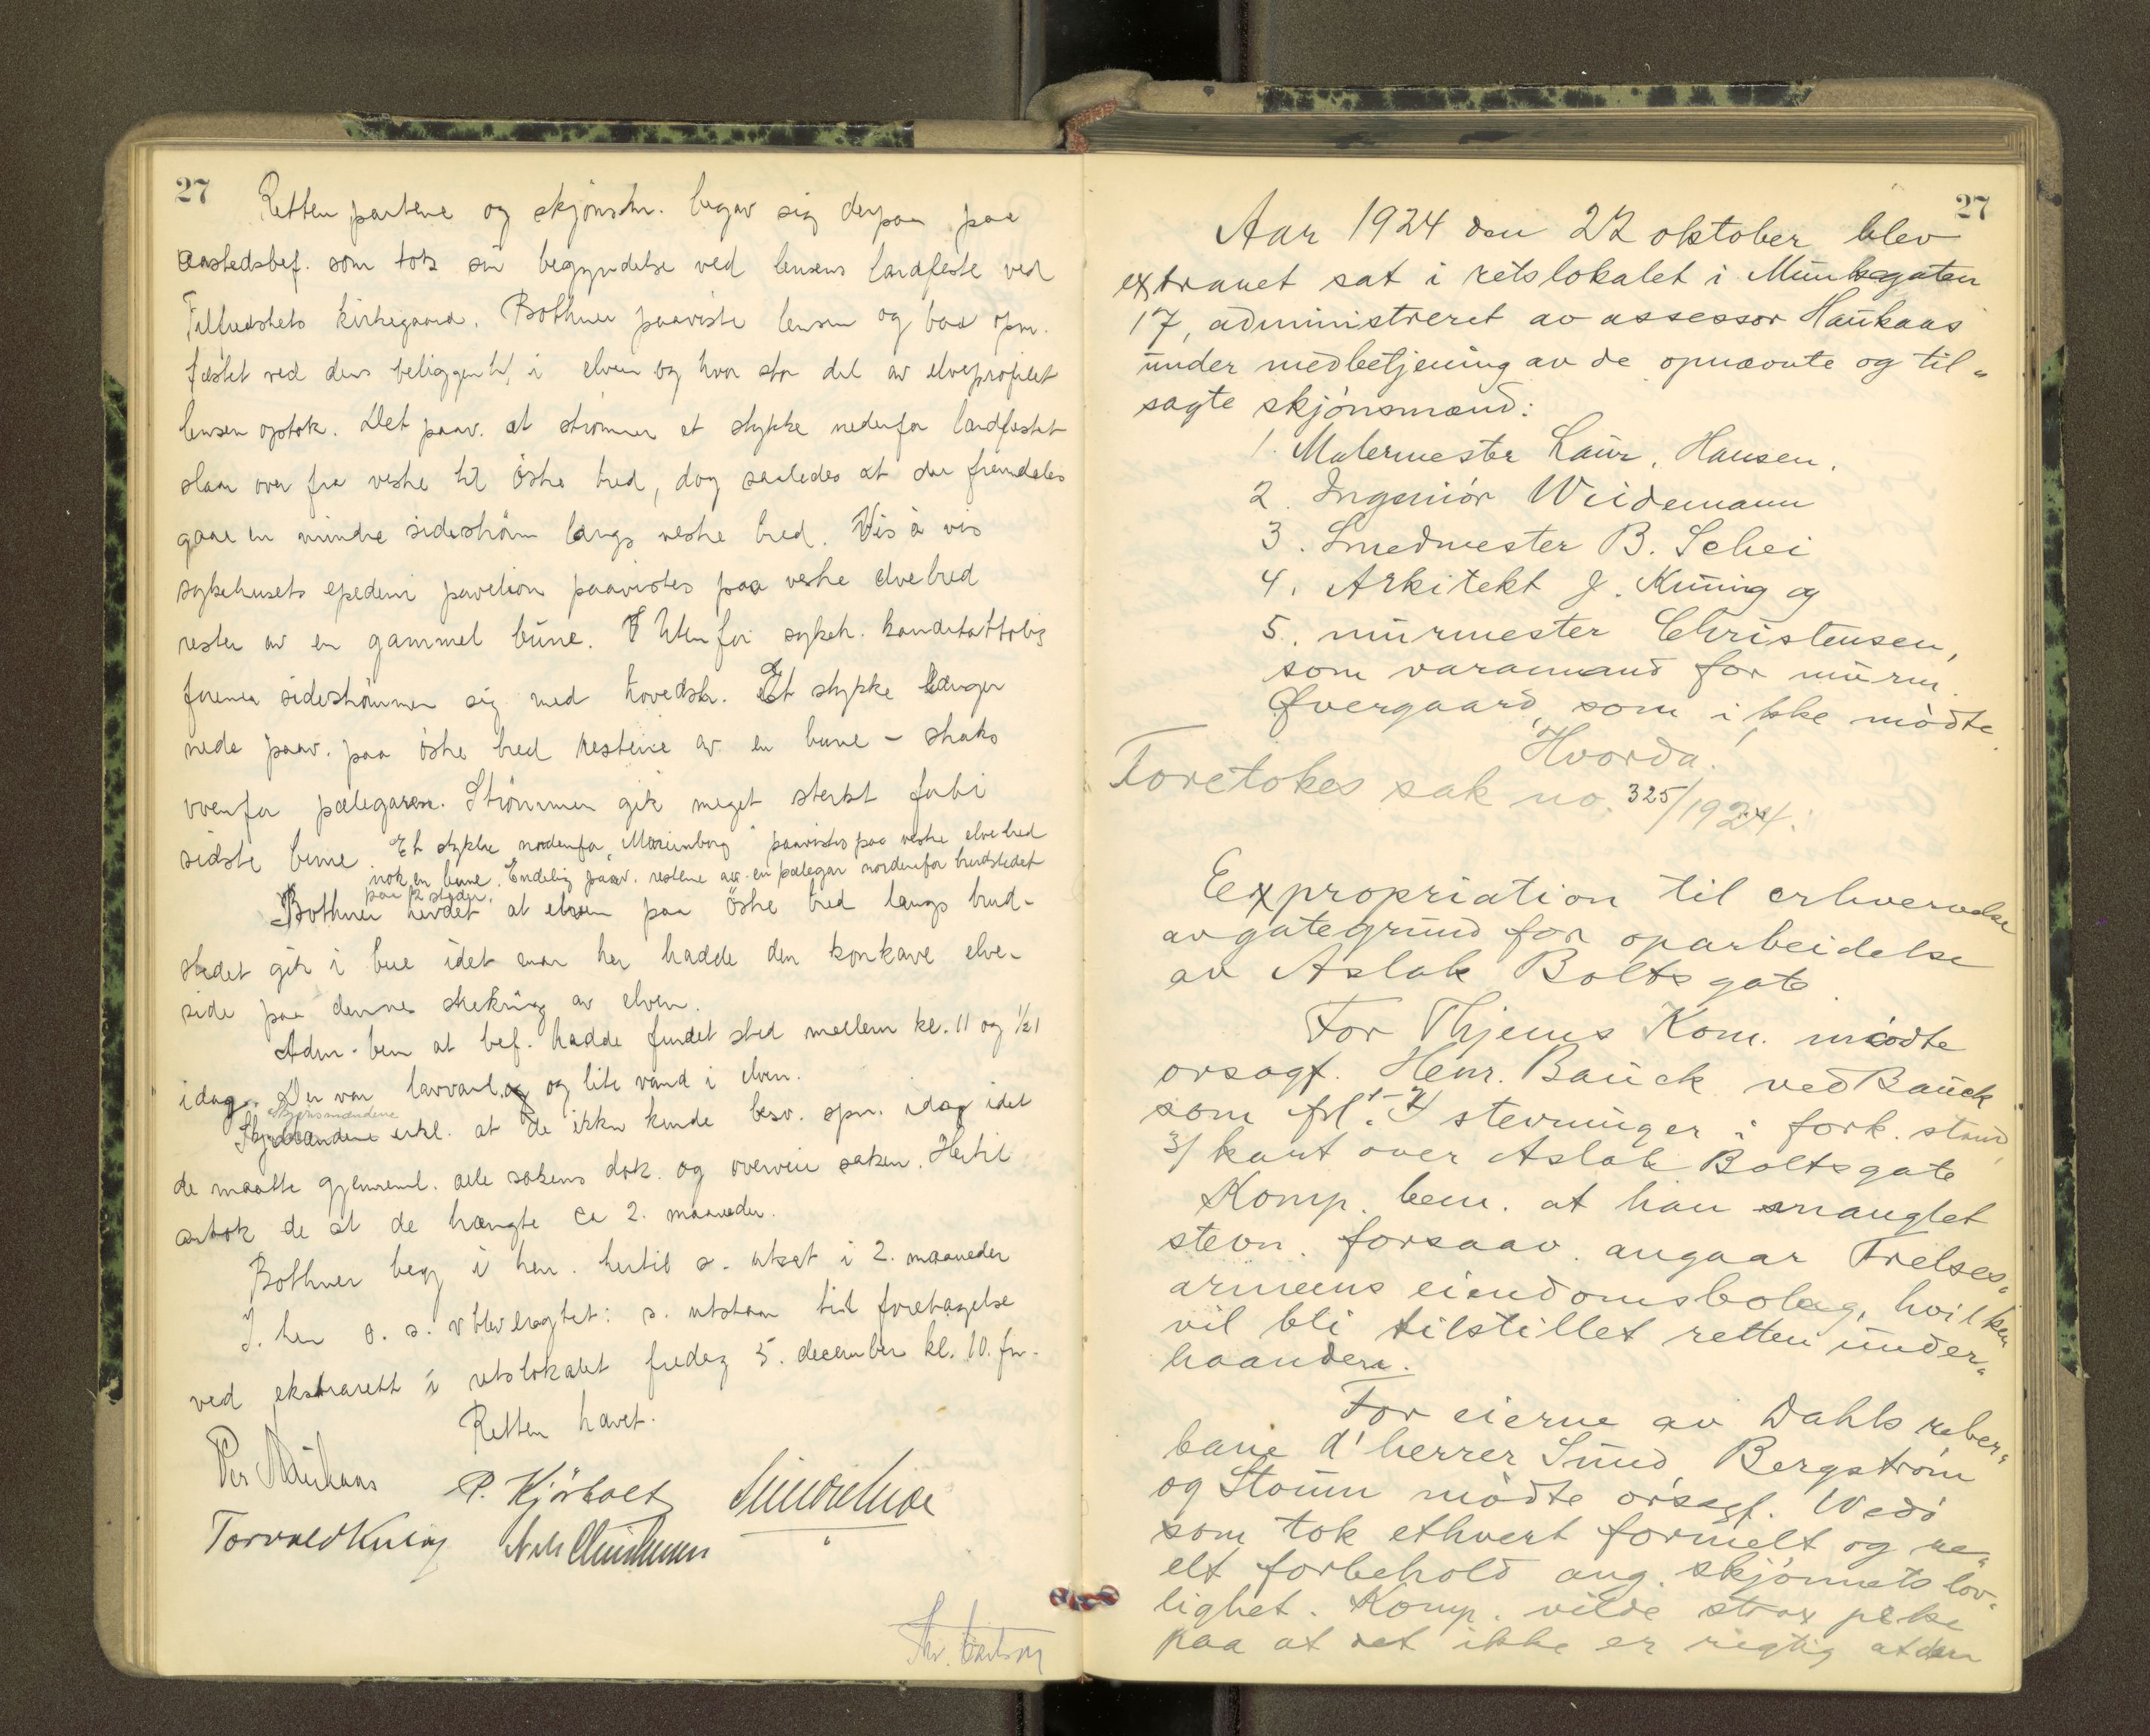 27
Retten partene og skjönsm. begav sig derpaa paa
aastedsbef. som tok sin begyndelse ved lensens landfeste ved
Tilfredshets kirkegaard. Bothner paaviste lensen og bad opm.
fæstet ved dens beliggenh. i elven og hvor stor del av elveprofilet
lensen optok. Det paav. at strömmen et stykke nedenfor landfestet
slaar over fra vestre til östre bred, dog saaledes at der fremdeles
gaar en mindre sideström langs vestre bred. Vis à vis
sykehusets epedemi pavelion paavistes paa vestre elvebred
rester av en gammel bune. Utenfor sykeh.
forener sideströmmen sig med hovedstr. Et stykke længer
nede paav. paa östre bred restene av en bune – straks
ovenfor pælegaren. Strömmen gik meget sterkt forbi
sidste bune. Et stykke nordenfor „Marienborg" paavistes paa vestre elvebred
nok en bune. Endelig paav. restene av en pælegar nordenfor brudstedet
paa 2 steder.
Bothner hevdet at elven paa östre bred langs brud-
stedet gik i bue idet man her hadde den konkave elve-
side paa denne strekning av elven.
Adm. bem at bef. hadde fundet sted mellem kl. 11 og ½1
idag. Der var lavvand og lite vand i elven.
Skjönsmændene
erkl. at de ikke kunde besv. spm. idag idet
de maatte gjennemg. alle sakens dok. og overveie saken. Hertil
antok de at de trængte ca 2. maaneder.
Bothner beg i hen. hertil s. utsat i 2. maaneder
I. hen s. s. v blev eragtet: s. utstaar til foretagelse
ved ekstrarett i retslokalet fredag 5. december kl. 10. fm.
Retten hævet.
Per Haukaas P. Kjörholt
Torvald Kuing
27
Aar 1924 den 22 oktober blev
extraret sat i retslokalet i Munkegaten
17, administreret av assessor Haukaas
under medbetjening av de opnævnte og til„
sagte skjönsmænd:
1. Malermester Laur. Hansen.
2. Ingeniör Weidemann
3. Smedmester B. Schei
4. Arkitekt J. Kuning og
5. murmester Christensen,
som varamand for murm.
Øvergaard, som ikke mödte.
Hvorda!
Foretokes sak no. 325/1924.
Expropriation til erhvervelse
av gategrund for oparbeidelse
av Aslak Bolts gate
For Thjems Kom. mödte
orsagf. Henr. Bauck ved Bauck
som frl. 1-7 stevninger i fork. stand,
3/ kart over Aslak Boltsgate
Komp. bem. at han manglet
stevn. forsaav. angaar Frelses„
armeens eiendomsbolag, hvilken
vil bli tilstillet retten under„
haanden.
For eierne av Dahls reber„
bane d'herrer Sund, Bergström
og Staum mödte orsagf. Wedö
som tok ethvert formelt og re„
elt forbehold ang. skjönnets lov„
lighet. Komp. vilde strax peke
paa at det ikke er rigtig at den